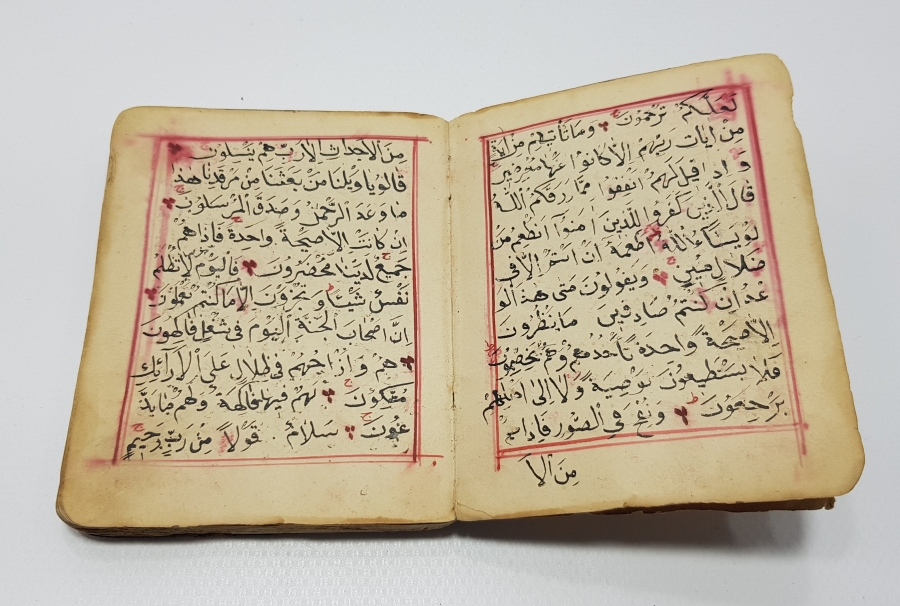 لَعَلَّكُمْ تُرْحَمُونَ وَمَا تَأْتِيهِمْ مِنْ آيَةٍ
مِنْ آيَاتِ رَبِّهِمْ إِلَّا كَانُوا عَنْهَا مُعْرِضِينَ
وَإِذَا قِيلَ لَهُمْ أَنْفِقُوا مِمَّا رَزَقَكُمُ اللَّهُ
قَالَ الَّذِينَ كَفَرُوا لِلَّذِينَ آمَنُوا أَنُطْعِمُ مَنْ
لَوْ يَشَاءُ اللَّهُ أَطْعَمَهُ إِنْ أَنْتُمْ إِلَّا فِي
ضَلَالٍ مُبِينٍ وَيَقُولُونَ مَتَى هَذَا الْوَ
عْدُ إِنْ كُنْتُمْ صَادِقِينَ مَا يَنْظُرُونَ
إِلَّا صَيْحَةً وَاحِدَةً تَأْخُذُهُمْ وَهُمْ يَخِصِّمُونَ
فَلَا يَسْتَطِيعُونَ تَوْصِيَةً وَلَا إِلَى أَهْلِهِمْ
يَرْجِعُونَ وَنُفِخَ فِي الصُّورِ فَإِذَا هُمْ
مِنَ الْأَ
مِنَ الْأَجْدَاثِ إِلَى رَبِّهِمْ يَنْسِلُونَ
قَالُوا يَا وَيْلَنَا مَنْ بَعَثَنَا مِنْ مَرْقَدِنَا هَذَا
مَا وَعَدَ الرَّحْمَنُ وَصَدَقَ الْمُرْسَلُونَ
إِنْ كَانَتْ إِلَّا صَيْحَةً وَاحِدَةً فَإِذَا هُمْ
جَمِيعٌ لَدَيْنَا مُحْضَرُونَ فَالْيَوْمَ لَا تُظْلَمُ
نَفْسٌ شَيْئًا وَلَا تُجْزَوْنَ إِلَّا مَا كُنْتُمْ تَعْمَلُونَ
إِنَّ أَصْحَابَ الْجَنَّةِ الْيَوْمَ فِي شُغُلٍ فَاكِهُونَ
هُمْ وَأَزْوَاجُهُمْ فِي ظِلَالٍ عَلَى الْأَرَائِكِ
مُتَّكِئُونَ لَهُمْ فِيهَا فَاكِهَةٌ وَلَهُمْ مَا يَدَّ
عُونَ سَلَامٌ قَوْلًا مِنْ رَبٍّ رَحِيمٍ